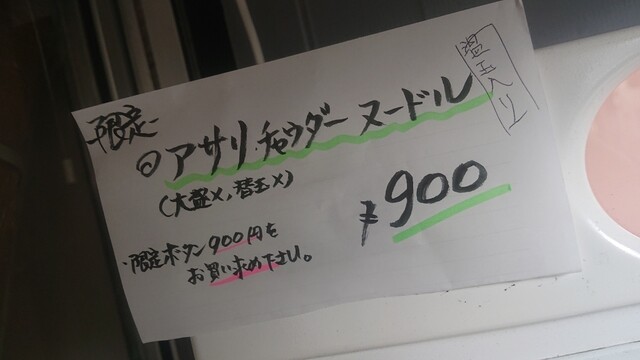 -限定-
◎アサリ・チャウダー ヌードル
(大盛×, 替玉×)
¥900
・限定ボタン900円を
お買い求め下さい。
温玉入り